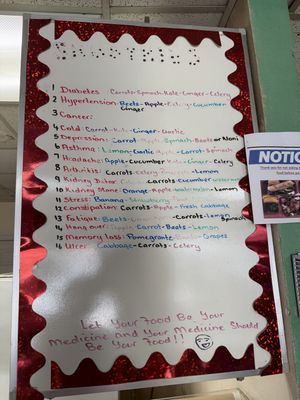 1 Diabetes Carrot-Spinach-Kale-Ginger-Celery
2 Hypertension Beets-Apple-Celery-Cucumber
Ginger
3 Cancer:
4 Cold: Carrot-Kale-Ginger-Garlic
5 Depression: Carrot-Apple-Spinach-Beets or Noni
6 Asthma: Lemon-Garlic-Apple-Carrot-Spinach
7 Headache: Apple-Cucumber-Kale-Ginger-Celery
8 Arthritis: Carrots-Celery-Lemon
9 Kidney Carrots-Cucumber
10 Kidney Stone Orange-Apple-Watermelon-Lemon
11 Stress: Banana-Strawberry
12 Constipation: Carrots-Apple-Fresh Cabbage
13 Fatigue: Beets-Carrots-Lemon
Spinach
14 Hang over: Apple-Carrot-Beets-Lemon
15 Memory loss: Pomegranate-Beets-Grapes
16 Ulcer Cabbage-Carrots-Celery
Let Your Food Be Your
Medicine and Your Medicine Should
Be Your Food!!
NOTIC